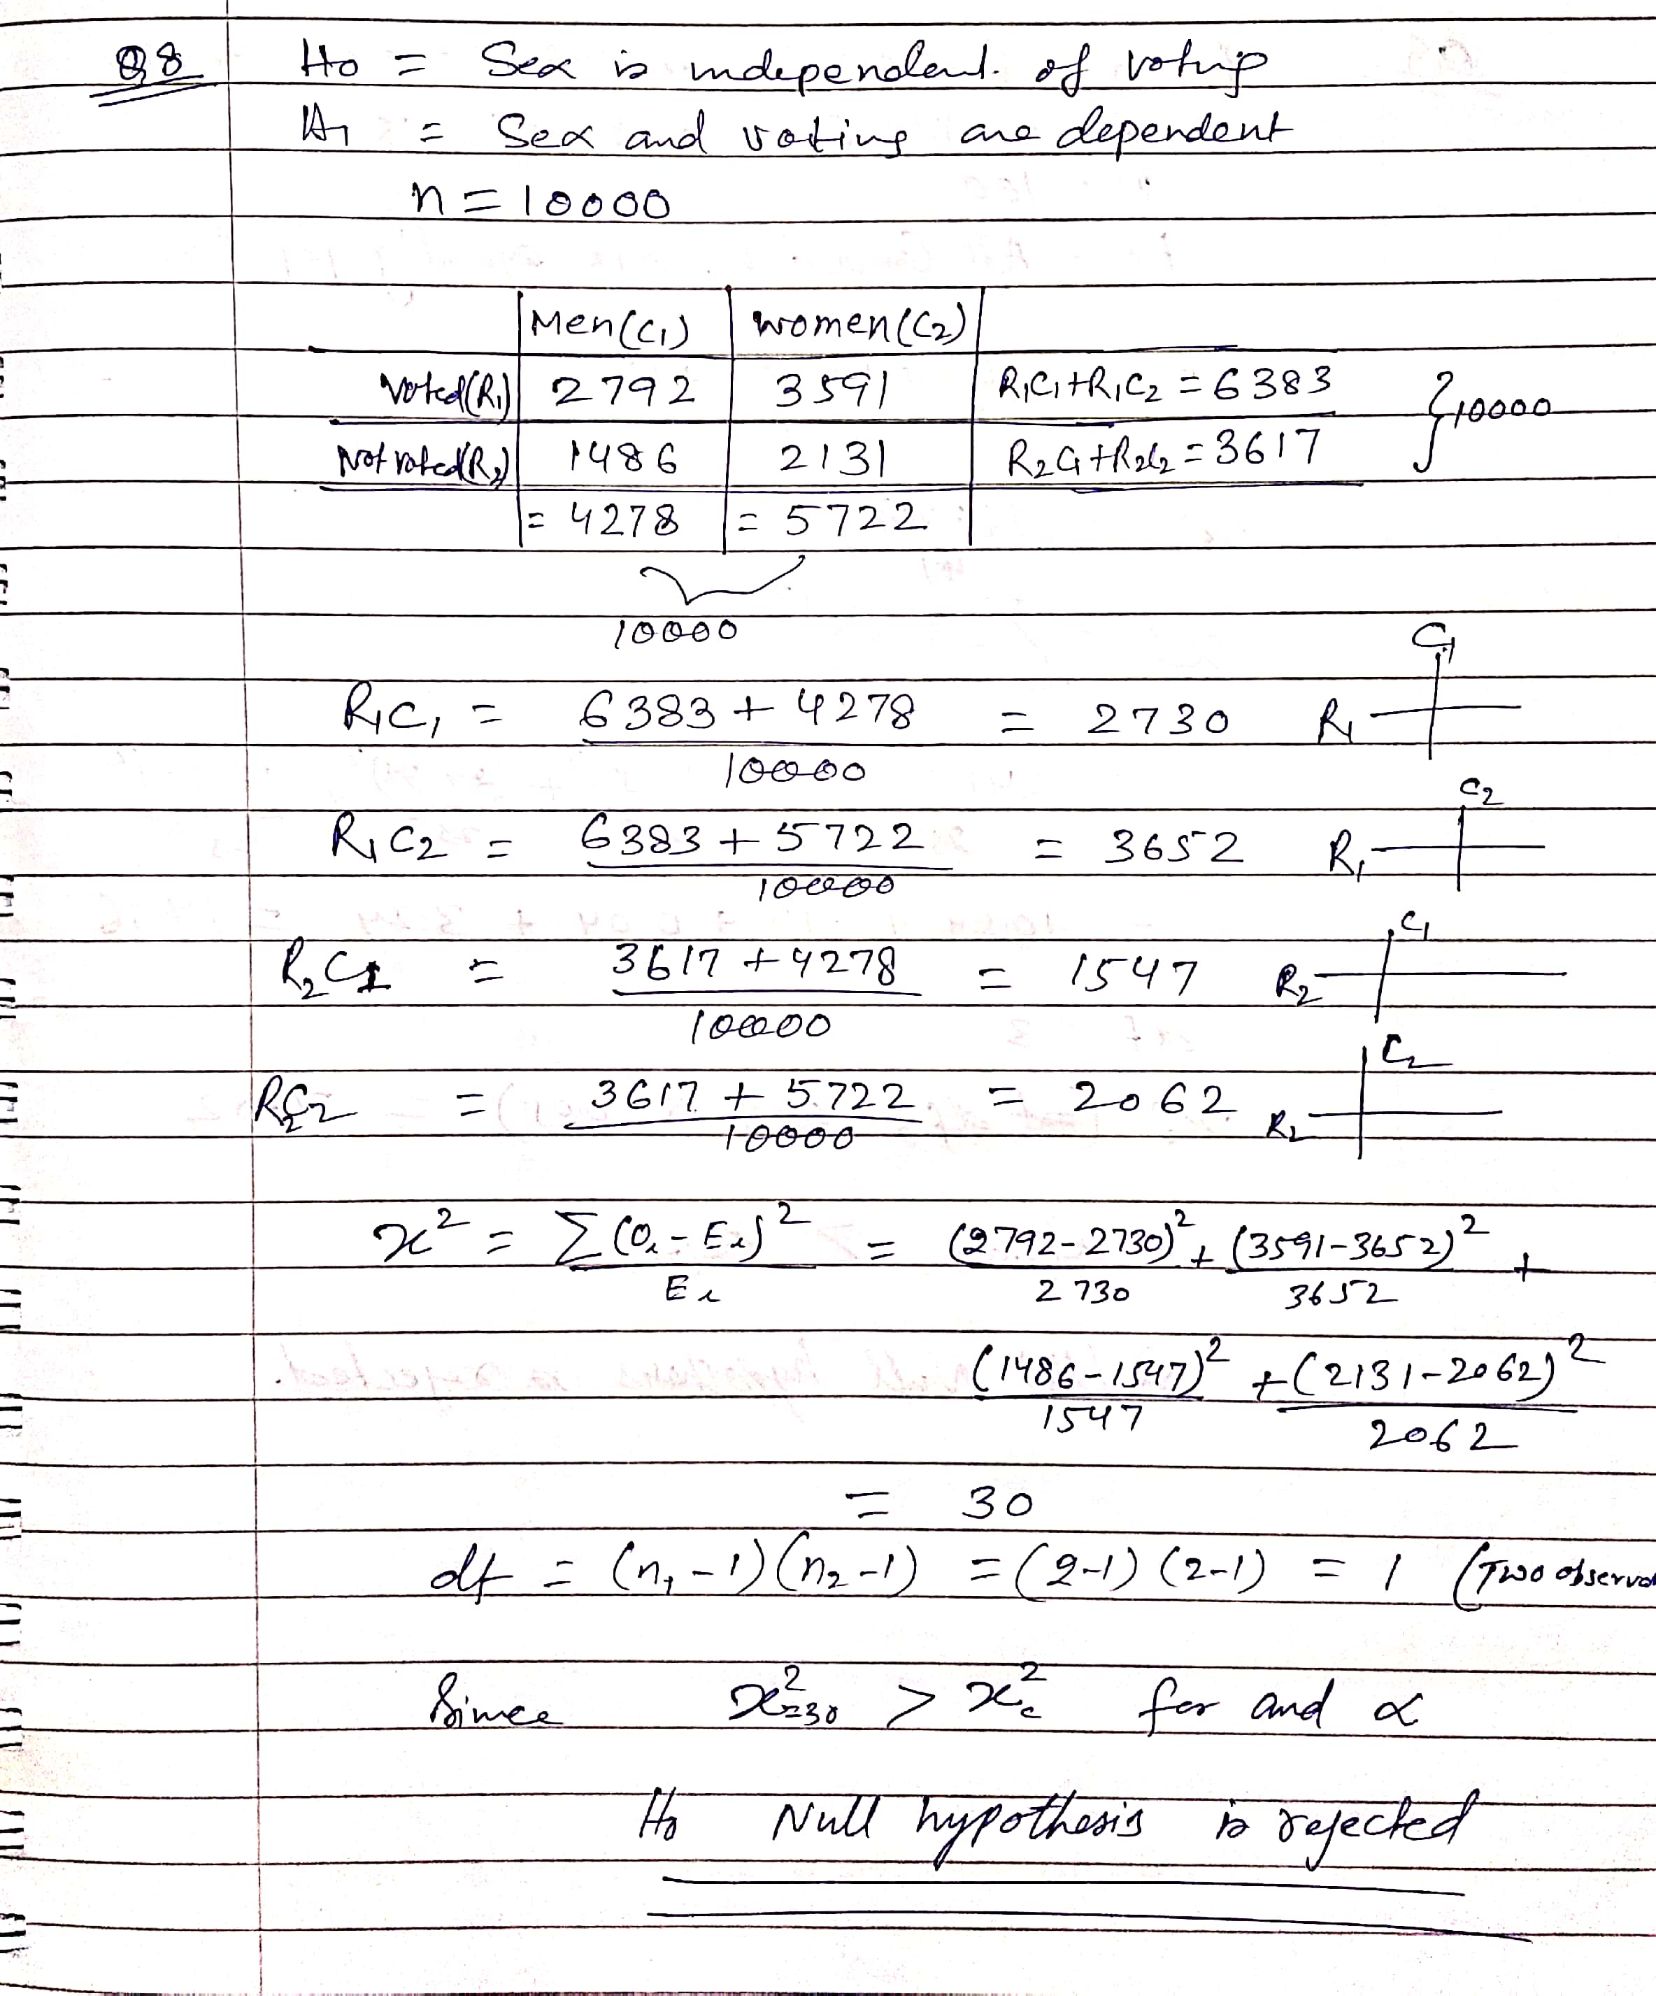 Q8 H0 = Sex is independent of voting
H1 = Sex and voting are dependent
n = 10000
Men(C1) women(C2)
Voted(R1) 2792 3591 R1C1+R1C2 = 6383 } 10000
Not voted(R2) 1486 2131 R2C1+R2C2 = 3617
= 4278 = 5722
10000
R1C1 = 6383 + 4278 / 10000 = 2730 R1 C1
R1C2 = 6383 + 5722 / 10000 = 3652 R1 C2
R2C1 = 3617 + 4278 / 10000 = 1547 R2 C1
R2C2 = 3617 + 5722 / 10000 = 2062 R2 C2
x² = Σ(Oi - Ei)² / Ei = (2792-2730)² / 2730 + (3591-3652)² / 3652 +
(1486-1547)² / 1547 + (2131-2062)² / 2062
= 30
df = (n1-1)(n2-1) = (2-1)(2-1) = 1 (Two observa
Since x²=30 > x²c for and α
H0 Null hypothesis is rejected